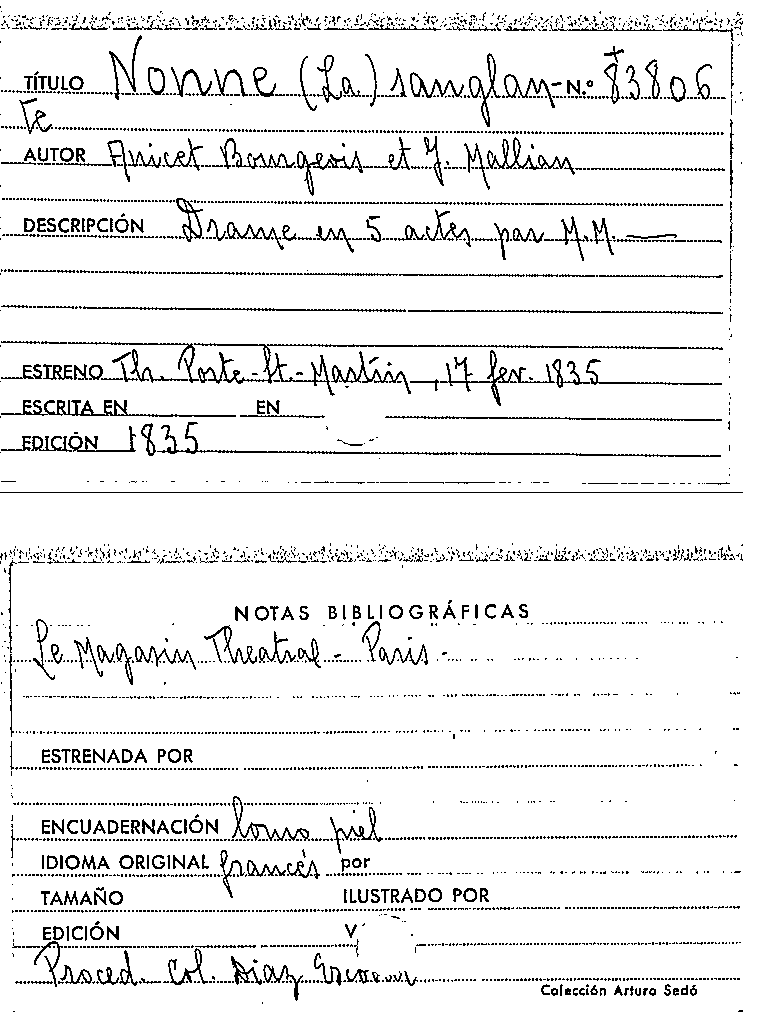 TÍTULO Nonne (La) sanglan- N.º 83806
te
AUTOR Anicet Bourgeois et J. Mallian
DESCRIPCIÓN Drame en 5 actes par M.M. —
ESTRENO Th. Porte-St.-Martin, 17 fev. 1835
ESCRITA EN EN
EDICIÓN 1835
NOTAS BIBLIOGRÁFICAS
Le Magasin Theatral - Paris -
ESTRENADA POR
ENCUADERNACIÓN lomo piel
IDIOMA ORIGINAL francés por
TAMAÑO ILUSTRADO POR
EDICIÓN V
Proced. Col. Diaz Escovar
Colección Arturo Sedó